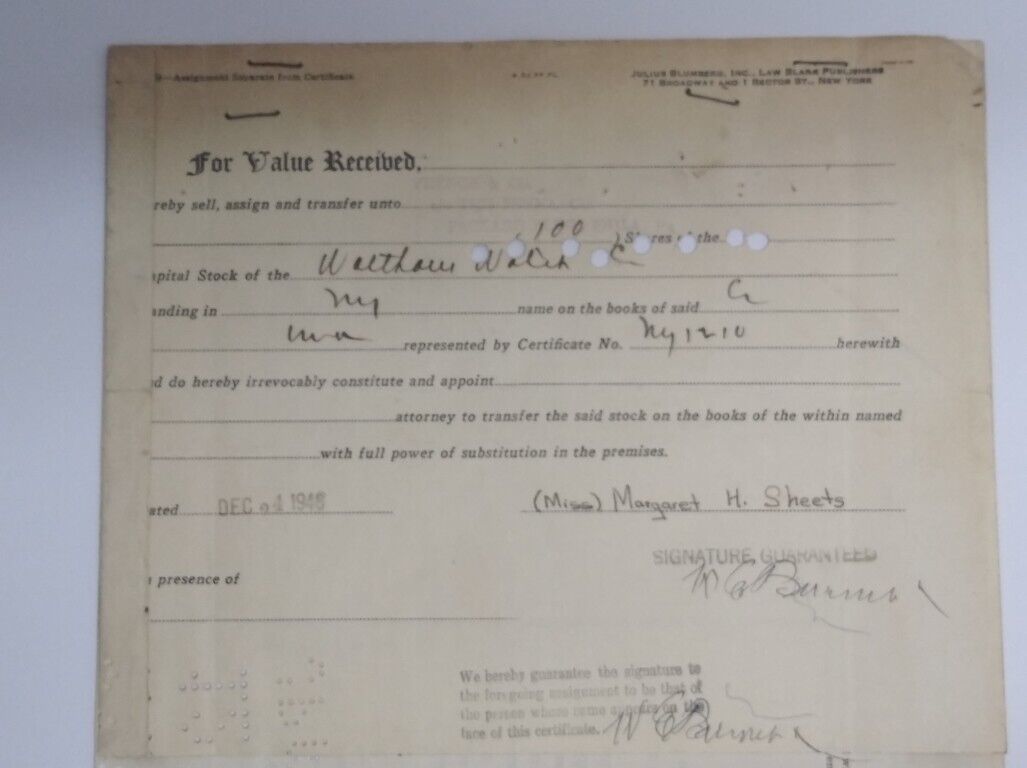 9—Assignment Separate from Certificate
JULIUS BLUMBERG, INC., LAW BLANK PUBLISHERS
71 BROADWAY AND 1 RECTOR ST., NEW YORK
For Value Received,
reby sell, assign and transfer unto
100 ) Shares of the
apital Stock of the Waltham Watch Co
anding in my name on the books of said Co
represented by Certificate No. NY1210 herewith
d do hereby irrevocably constitute and appoint
attorney to transfer the said stock on the books of the within named
with full power of substitution in the premises.
ated DEC 1946 (Miss) Margaret H. Sheets
SIGNATURE GUARANTEED
n presence of
We hereby guarantee the signature to
the foregoing assignment to be that of
the person whose name appears on the
face of this certificate.